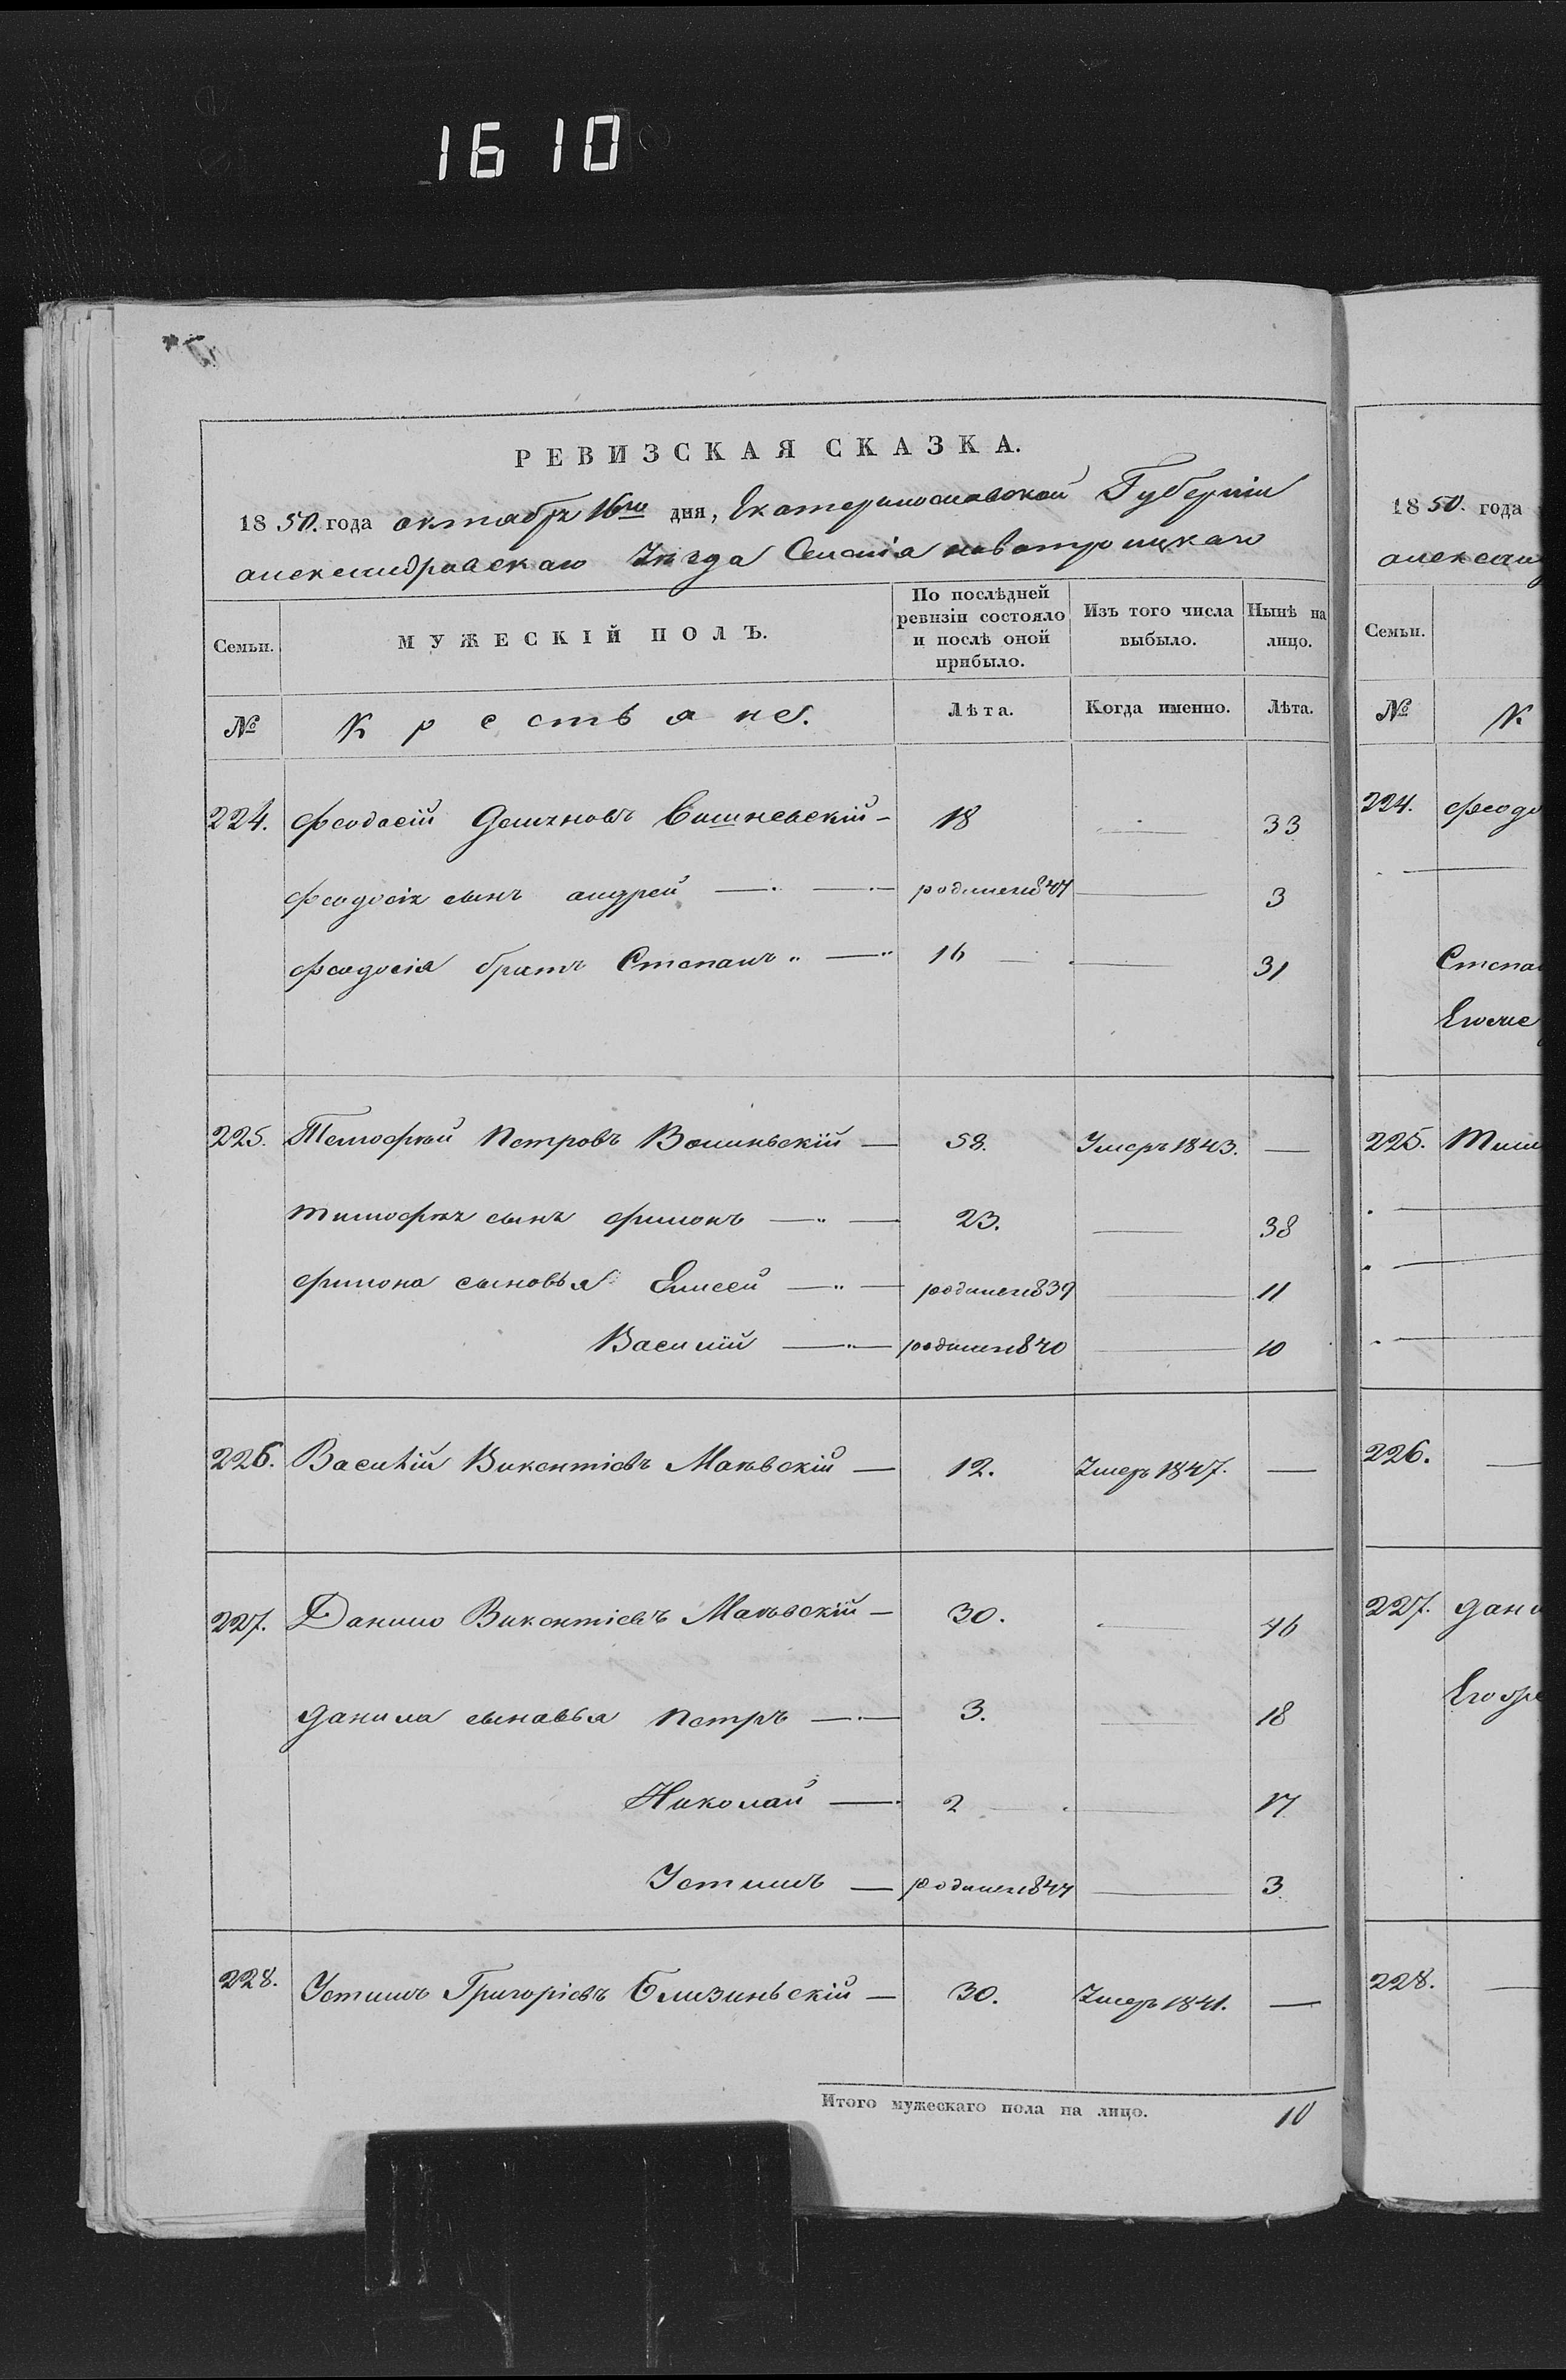 1610
РЕВИЗСКАЯ СКАЗКА.
1850. года октября 16го дня, Екатеринославской Губерніи
александровскаго Уезда Селенія новотроицкаго
Семьи. МУЖЕСКІЙ ПОЛЪ. По послѣдней ревизіи состояло и послѣ оной прибыло. Изъ того числа выбыло. Нынѣ на лицо.
№ Крестьяне. Лѣта. Когда именно. Лѣта.
224. Феодосій — 18 — 33
Феодосія сынъ андрей — родился 1847 — 3
Феодосія братъ Степанъ — 16 — 31
225. Тимофей Петровъ Волиньскій — 58. Умеръ 1843. —
тимофея сынъ филонъ — 23. — 38
филона сыновья Елисей — родился 1839 — 11
Василій — родился 1840 — 10
226. Василій Викентіевъ Маковскій — 12. Умеръ 1847. —
227. Данило Викентіевъ Маковскій — 30. — 46
данила сыновья Петръ — 3. — 18
Николай — 2 — 17
Устинъ — родился 1847 — 3
228. Устинъ Григоріевъ Близиньскій — 30. Умеръ 1841. —
Итого мужескаго пола на лицо. 10
1850. года
алексан
Семьи.
№ К
224. Феодо
Степан
Егоже
225. Тим
226. —
227. дани
Его
228. —